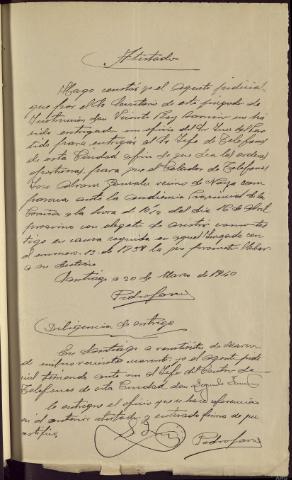 Atestado
Hago constar yo el Agente judicial,
que por el Sr. Secretario de este juzgado de
Instrucción don Vicente Rey me ha
sido entregado un oficio del Sr. Juez
para entregar al Sr. Jefe de Telefonos
de esta Ciudad afin de que de las ordenes
oportunas para que el Celador de Telefonos
José vecino de comparezca
ante la Audiencia Provincial de la
Coruña a la hora 10 ½ del dia 16 de Abril
proximo con objeto de asistir como testigo
en causa seguida en aquel Juzgado con
el numero 13 de 1938
a su destino
Santiago a 20 de Marzo de 1940
Diligencia de entrega
En Santiago a veintiseis de Marzo
de mil novecientos cuarenta, yo el agente judicial
teniendo ante mi al Jefe del Centro de
Telefonos de esta Ciudad don
le entregue el oficio que se hace referencia
en el anterior atestado y enterado firma de que
certifico